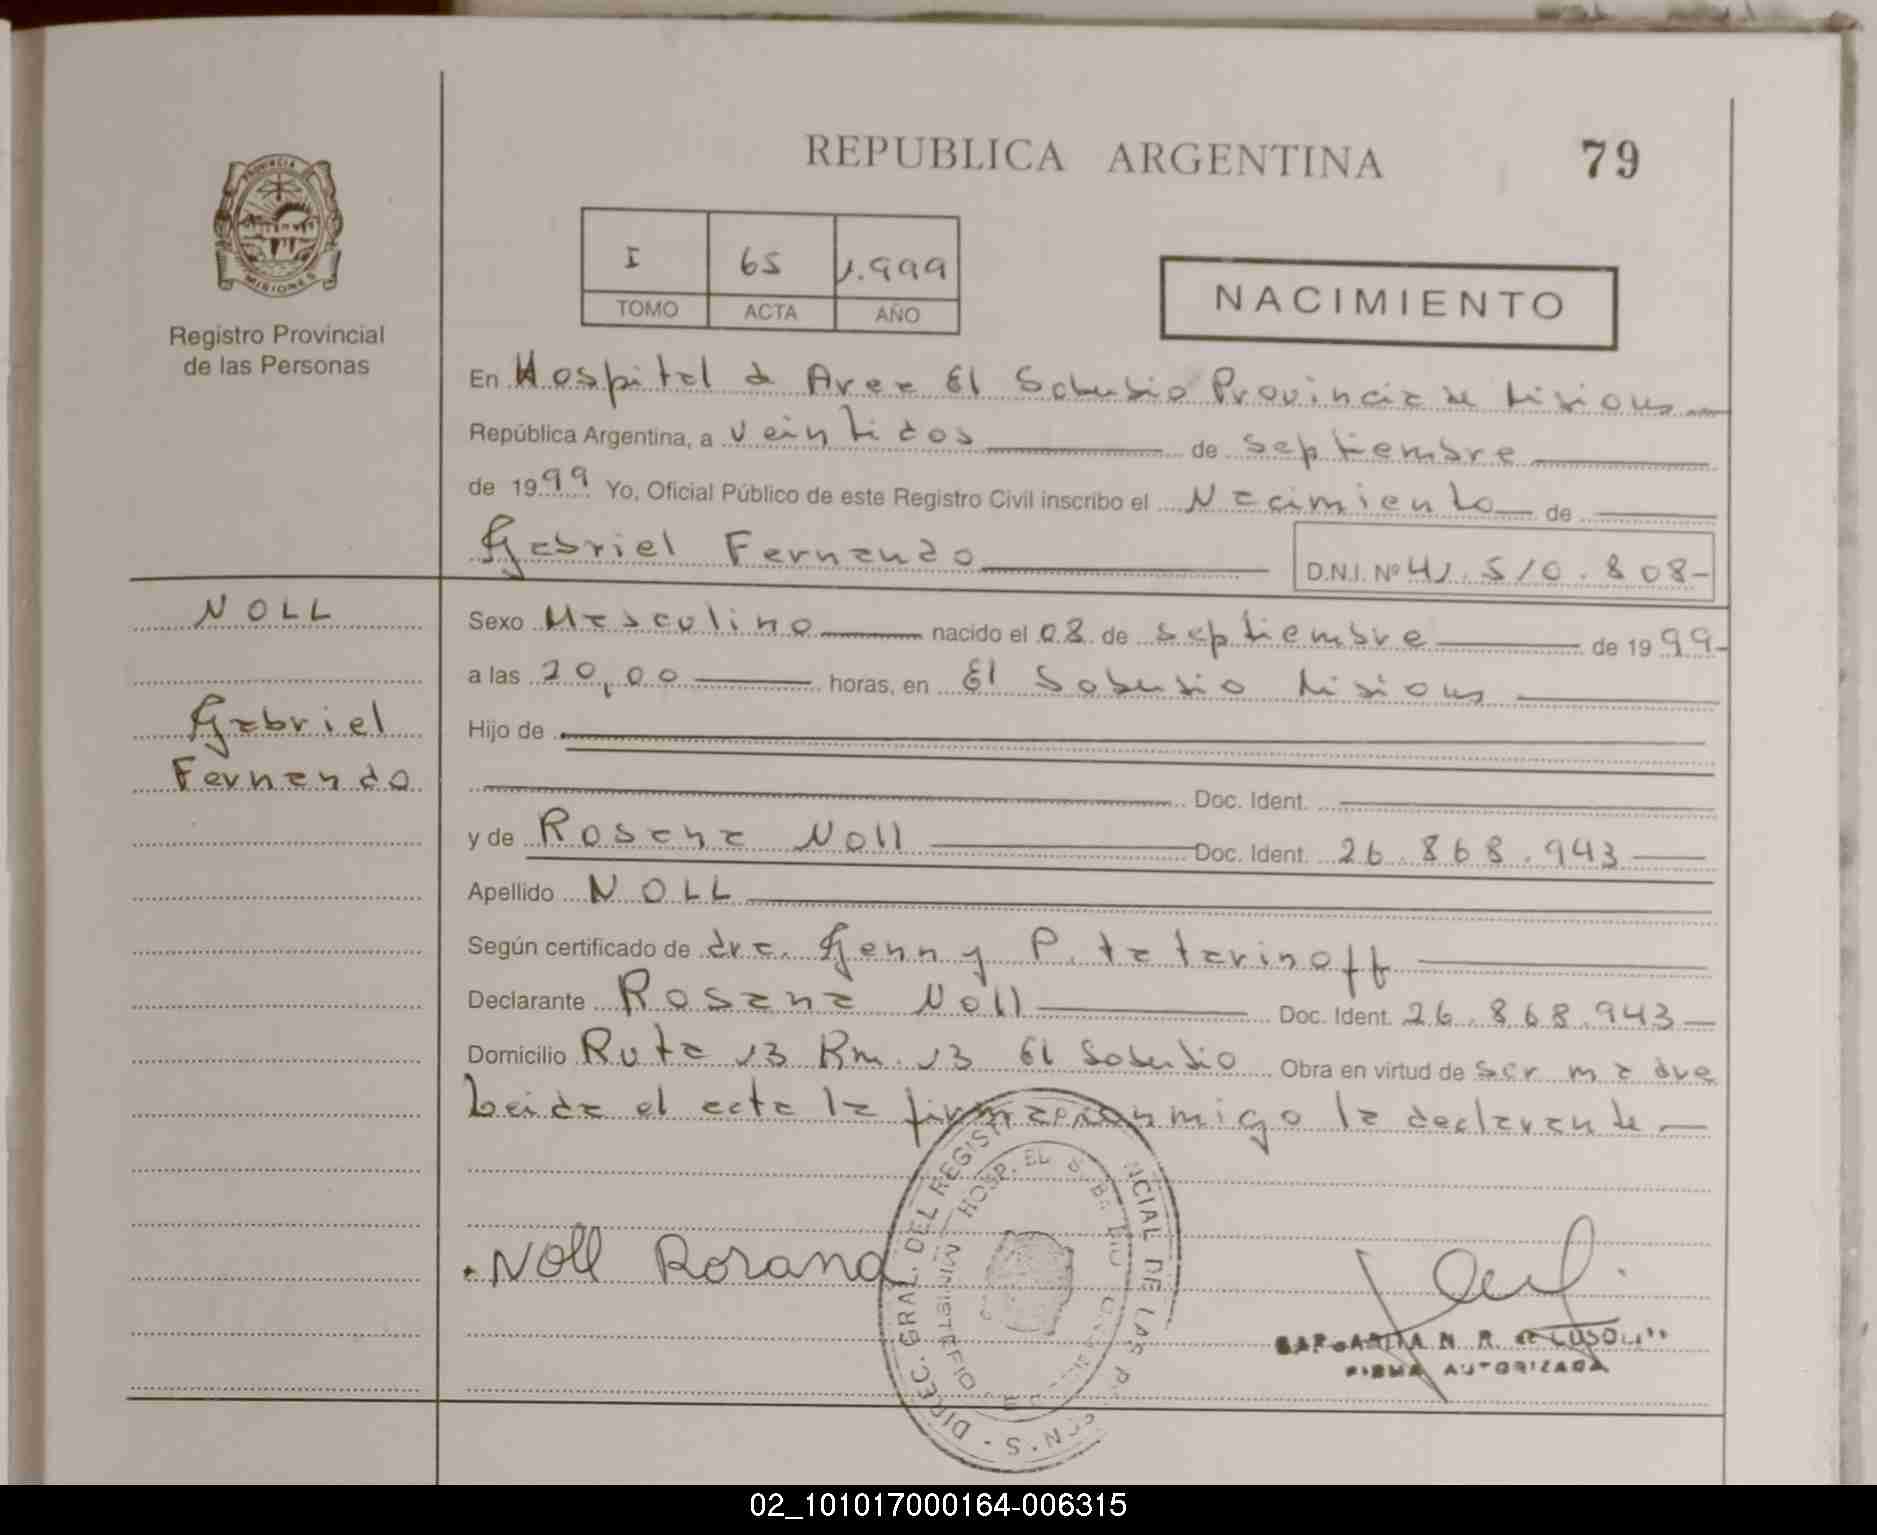 REPUBLICA ARGENTINA 79
PROVINCIA
MISIONES
Registro Provincial
de las Personas
I 65 1.999
TOMO ACTA AÑO
NACIMIENTO
En Hospital de Area El Soberbio Provincia de Misiones
República Argentina, a veintidos de septiembre
de 1999 Yo, Oficial Público de este Registro Civil inscribo el Nacimiento de
Gabriel Fernando D.N.I. Nº 41.510.808-
NOLL
Gabriel
Fernando
Sexo Masculino nacido el 08 de septiembre de 1999-
a las 20,00 horas, en El Soberbio Misiones
Hijo de
Doc. Ident.
y de Rosana Noll Doc. Ident. 26.868.943
Apellido NOLL
Según certificado de dra. Genny P. tatarinoff
Declarante Rosana Noll Doc. Ident. 26.868.943
Domicilio Ruta 13 Km. 13 El Soberbio Obra en virtud de ser madre
Leida el acta la firma conmigo la declarante
DIREC. GRAL. DEL REGIST NCIAL DE LAS P
HOSP. EL
Noll Rosana
N. R. de
FIRMA AUTORIZADA
02_101017000164-006315